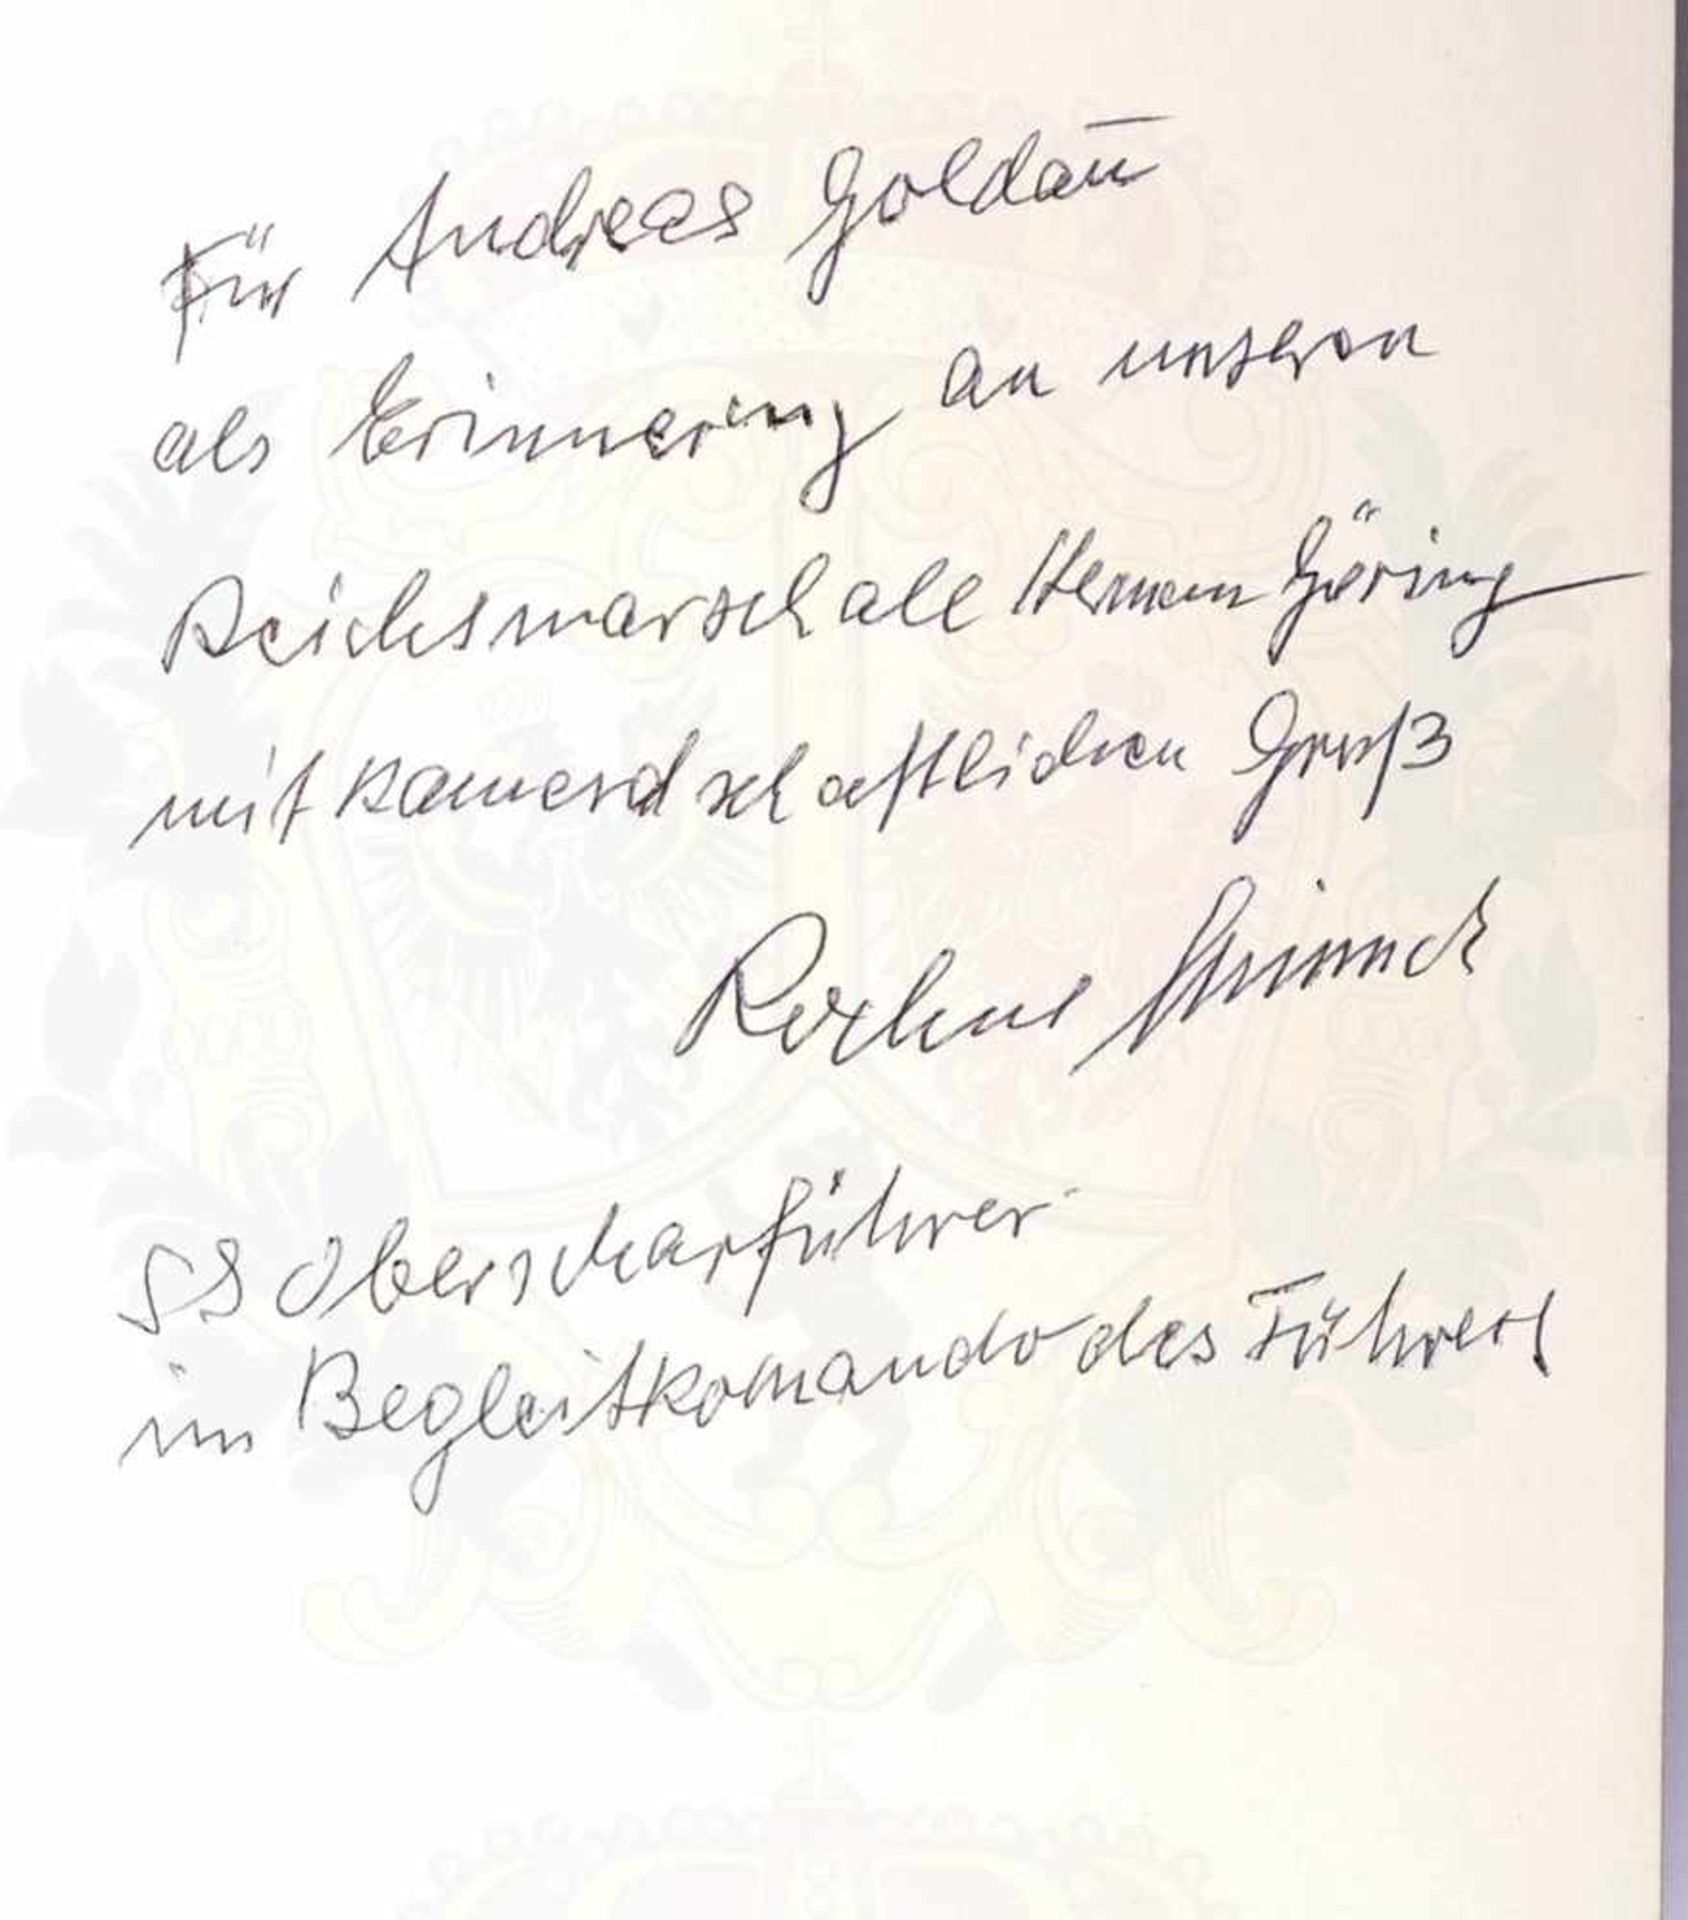 Für Andreas Goldau
als Erinnerung an unseren
Reichsmarschall Herman Göring
mit kameradschaftlichen Gruß
Rochus Misch
SS Oberscharführer
im Begleitkomando des Führers